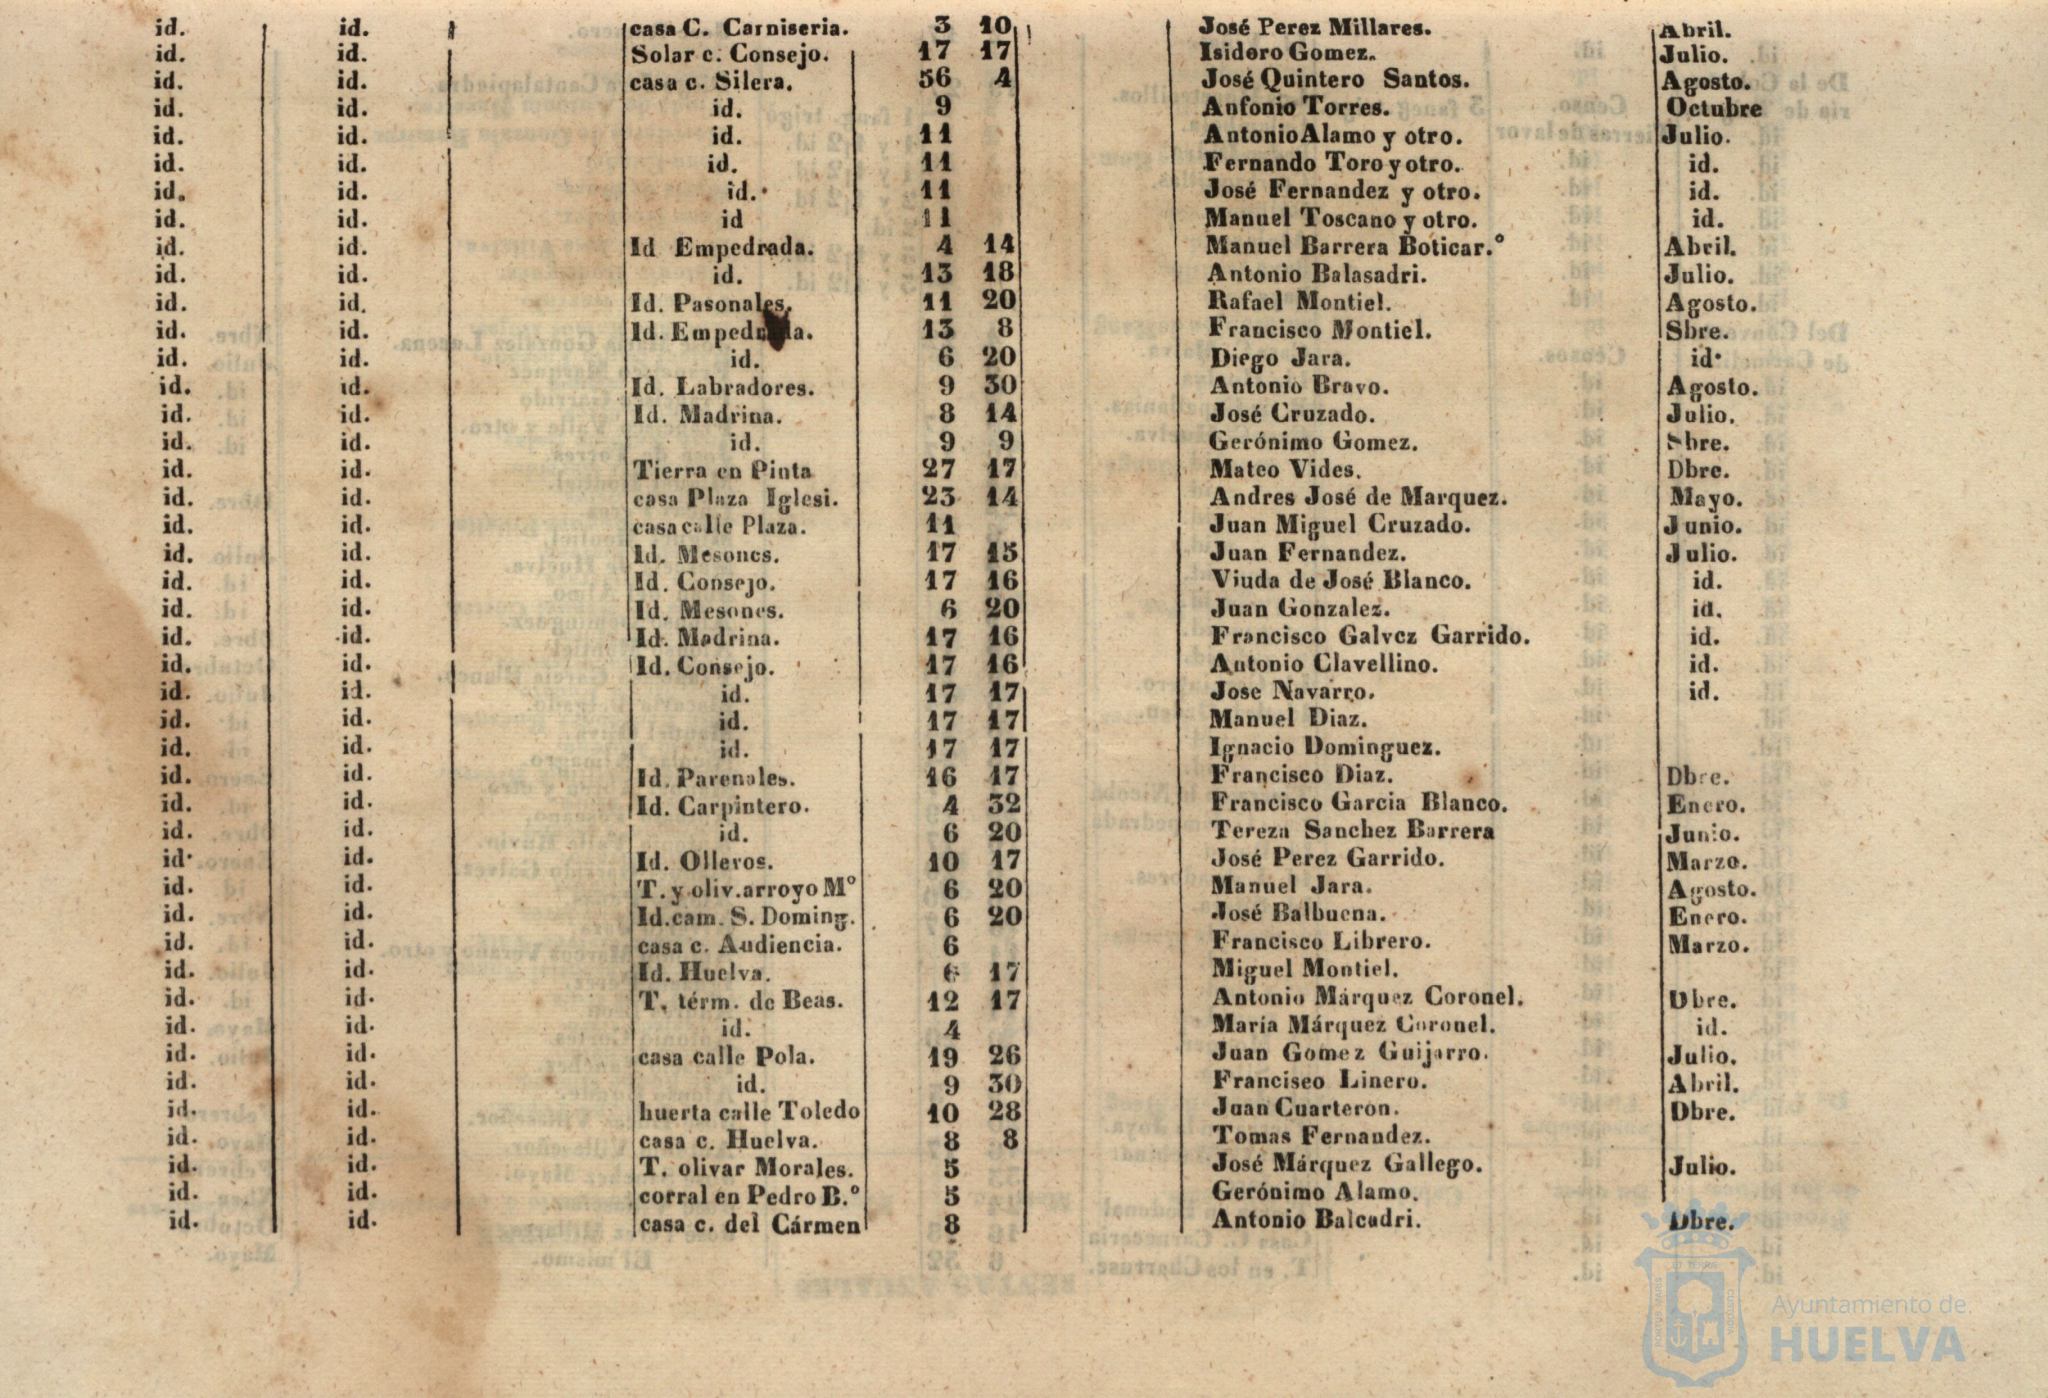 id. id. casa C. Carniseria. 3 10 José Perez Millares. Abril.
id. id. Solar c. Consejo. 17 17 Isidoro Gomez. Julio.
id. id. casa c. Silera. 56 4 José Quintero Santos. Agosto.
id. id. id. 9 Anfonio Torres. Octubre
id. id. id. 11 Antonio Alamo y otro. Julio.
id. id. id. 11 Fernando Toro y otro. id.
id. id. id. 11 José Fernandez y otro. id.
id. id. id 11 Manuel Toscano y otro. id.
id. id. Id Empedrada. 4 14 Manuel Barrera Boticar.º Abril.
id. id. id. 13 18 Antonio Balasadri. Julio.
id. id. Id. Pasonales. 11 20 Rafael Montiel. Agosto.
id. id. Id. Empedrada. 13 8 Francisco Montiel. Sbre.
id. id. id. 6 20 Diego Jara. id.
id. id. Id. Labradores. 9 30 Antonio Bravo. Agosto.
id. id. Id. Madrina. 8 14 José Cruzado. Julio.
id. id. id. 9 9 Gerónimo Gomez. Sbre.
id. id. Tierra en Pinta 27 17 Mateo Vides. Dbre.
id. id. casa Plaza Iglesi. 23 14 Andres José de Marquez. Mayo.
id. id. casa calle Plaza. 11 Juan Miguel Cruzado. Junio.
id. id. Id. Mesones. 17 15 Juan Fernandez. Julio.
id. id. Id. Consejo. 17 16 Viuda de José Blanco. id.
id. id. Id. Mesones. 6 20 Juan Gonzalez. id.
id. id. Id. Madrina. 17 16 Francisco Galvez Garrido. id.
id. id. Id. Consejo. 17 16 Antonio Clavellino. id.
id. id. id. 17 17 Jose Navarro. id.
id. id. id. 17 17 Manuel Diaz.
id. id. id. 17 17 Ignacio Dominguez.
id. id. Id. Parenales. 16 17 Francisco Diaz. Dbre.
id. id. Id. Carpintero. 4 32 Francisco Garcia Blanco. Enero.
id. id. id. 6 20 Tereza Sanchez Barrera Junio.
id. id. Id. Olleros. 10 17 José Perez Garrido. Marzo.
id. id. T. y oliv. arroyo Mº 6 20 Manuel Jara. Agosto.
id. id. Id. cam. S. Doming. 6 20 José Balbuena. Enero.
id. id. casa c. Audiencia. 6 Francisco Librero. Marzo.
id. id. Id. Huelva. 6 17 Miguel Montiel.
id. id. T. térm. de Beas. 12 17 Antonio Márquez Coronel. Dbre.
id. id. id. 4 María Márquez Coronel. id.
id. id. casa calle Pola. 19 26 Juan Gomez Guijarro. Julio.
id. id. id. 9 30 Franciseo Linero. Abril.
id. id. huerta calle Toledo 10 28 Juan Cuarteron. Dbre.
id. id. casa c. Huelva. 8 8 Tomas Fernandez.
id. id. T. olivar Morales. 5 José Márquez Gallego. Julio.
id. id. corral en Pedro B.º 5 Gerónimo Alamo.
id. id. casa c. del Cármen 8 Antonio Balcadri. Dbre.
Ayuntamiento de.
HUELVA